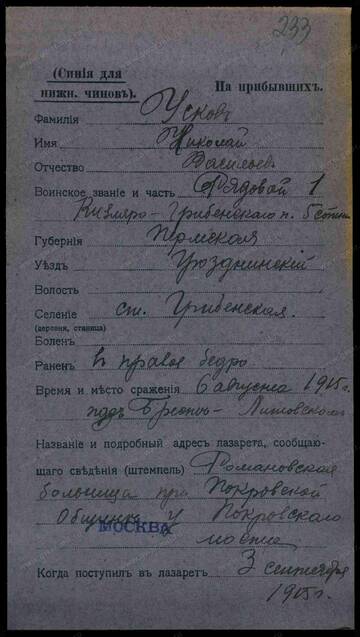 233
(Синія для
нижн. чиновъ).
На прибывшихъ.
Фамилія Усковъ
Имя Николай
Отчество Васильев
Воинское званіе и часть Рядовой 1
Кизляро-Гребенскаго п. 5 сотни
Губернія
Уѣздъ
Волость
Селеніе ст. Гребенская.
(деревня, станица)
Боленъ
Раненъ в правое бедро
Время и мѣсто сраженія 6 августа 1915 г.
подъ Брестъ-Литовском
Названіе и подробный адресъ лазарета, сообщаю-
щаго свѣдѣнія (штемпель) Романовская
больница при Покровской
Общинѣ у Покровскаго
МОСКВА
моста
Когда поступилъ въ лазаретъ 3 сентября
1915 г.